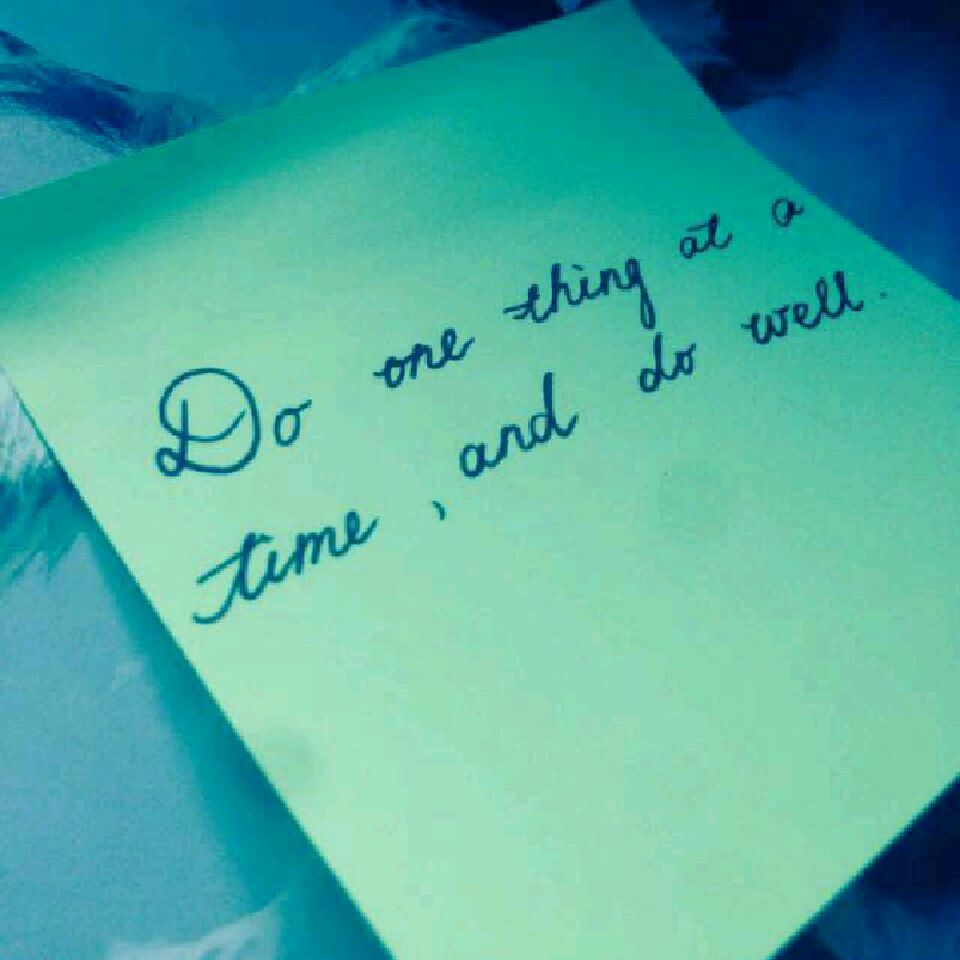 Do one thing at a
time, and do well.